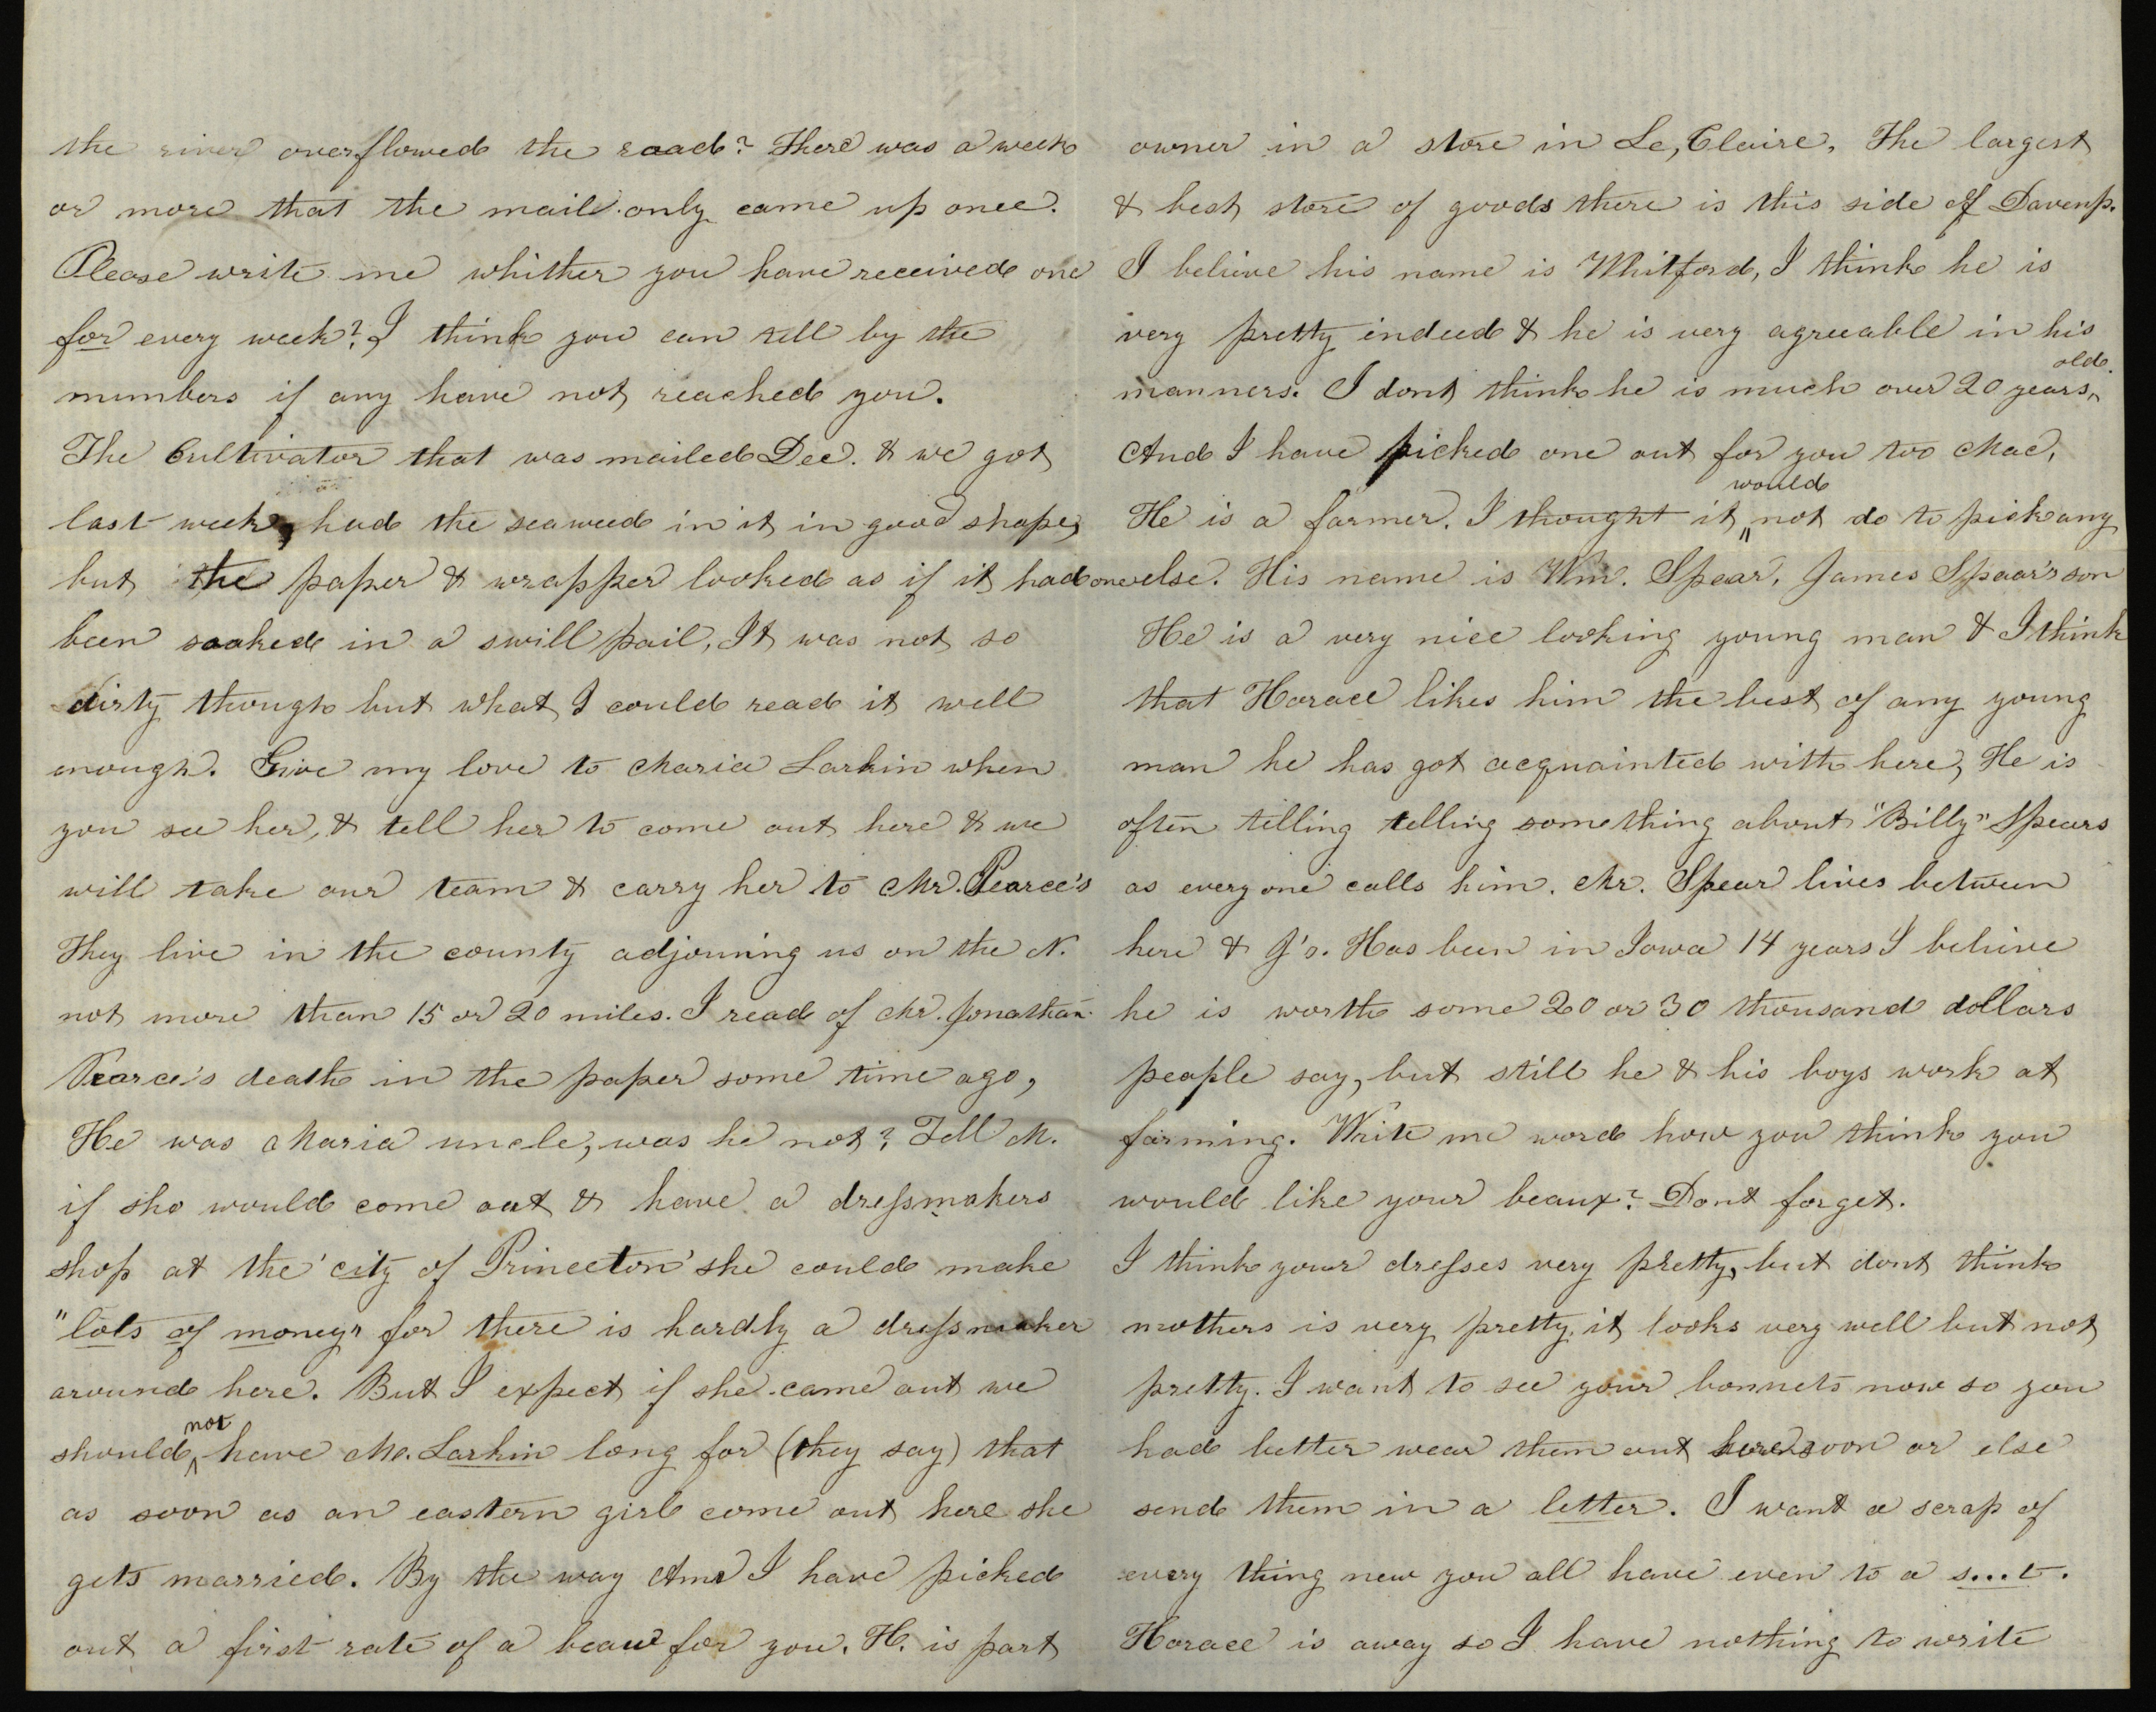 the river overflowed the roacd? There was a week
or more that the mail only came up once.
Please write me whither you have received one
for every week? I think you can tell by the
numbers if any have not reached you.
The Cultivator that was mailed Dec. & we got
last week, had the seaweed in it in good shape,
but the paper & wrapper looked as if it had
been soaked in a swill pail, It was not so
dirty though but what I could read it well
enough. Give my love to Maria Larkin when
you see her, & tell her to come out here & we
will take our team & carry her to Mr. Pearce's
They live in the county adjouning us on the N.
not more than 15 or 20 miles. I read of Mr. Jonathan
Pearce's death in the paper some time ago,
He was Maria uncle, was he not? Tell M.
if she would come out & have a dressmakers
shop at the 'city of Princeton' she could make
"lots of money" for there is hardly a dressmaker
around here. But I expect if she came out we
should not have M. Larkin long for (they say) that
as soon as an eastern girl come out here she
gets married. By the way Ame I have picked
out a first rate of a beau for you. H. is part
owner in a store in Le,Claire, The largest
& best store of goods there is this side of Davenp.
I believe his name is Whitford, I think he is
very pretty indeed & he is very agreeable in his
manners. I dont think he is much over 20 years old.
And I have picked one out for you too Mac,
He is a farmer. I thought it would not do to pick any
one else. His name is Wm. Spear, James Spear's son
He is a very nice looking young man & I think
that Horace likes him the best of any young
man he has got acquainted with here, He is
often telling telling something about "Billy" Spears
as every one calls him. Mr. Spear lives between
here & J's. Has been in Iowa 14 years I believe
he is worth some 20 or 30 thousand dollars
people say, but still he & his boys work at
farming. Write me word how you think you
would like your beaux? Dont forget.
I think your dresses very pretty, but dont think
mothers is very pretty, it looks very well but not
pretty. I want to see your bonnets now so you
had better wear them out here soon or else
send them in a letter. I want a scrap of
every thing new you all have even to a s...t.
Horace is away so I have nothing to write